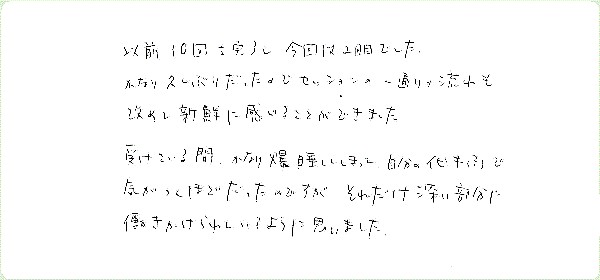 以前10回を完了し今回は2回目でした。
かなり久しぶりだったのでセッションの一通りの流れを
改めて新鮮に感じることができました
受けている間、かなり爆睡してしまって、自分のイビキで
気がつくほどだったのですが それだけ深い部分に
働きかけられているように思いました。